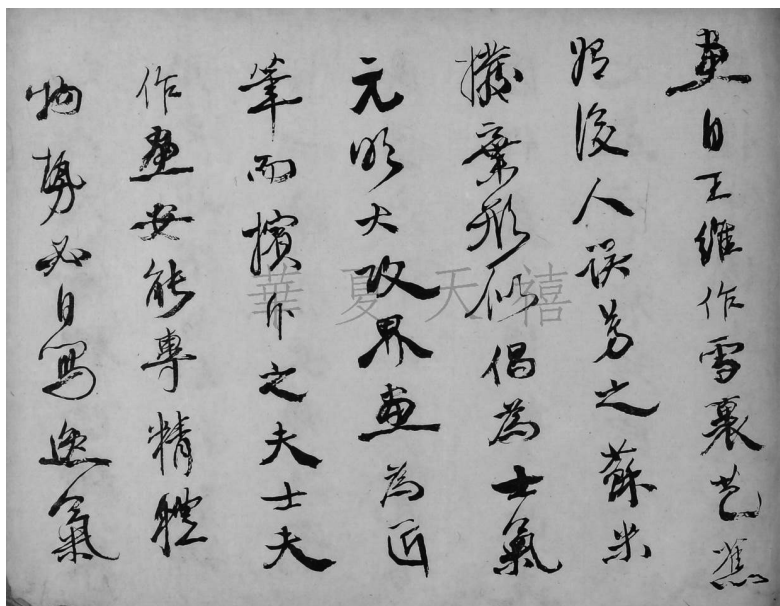 畫自王維作雪裏芭蕉
始後人誤尊之蘇米
撥棄形似倡為士氣
元明大攻界畫為匠
筆而擯斥之夫士夫
作畫安能專精體
物勢必自寫逸氣
華夏天禧